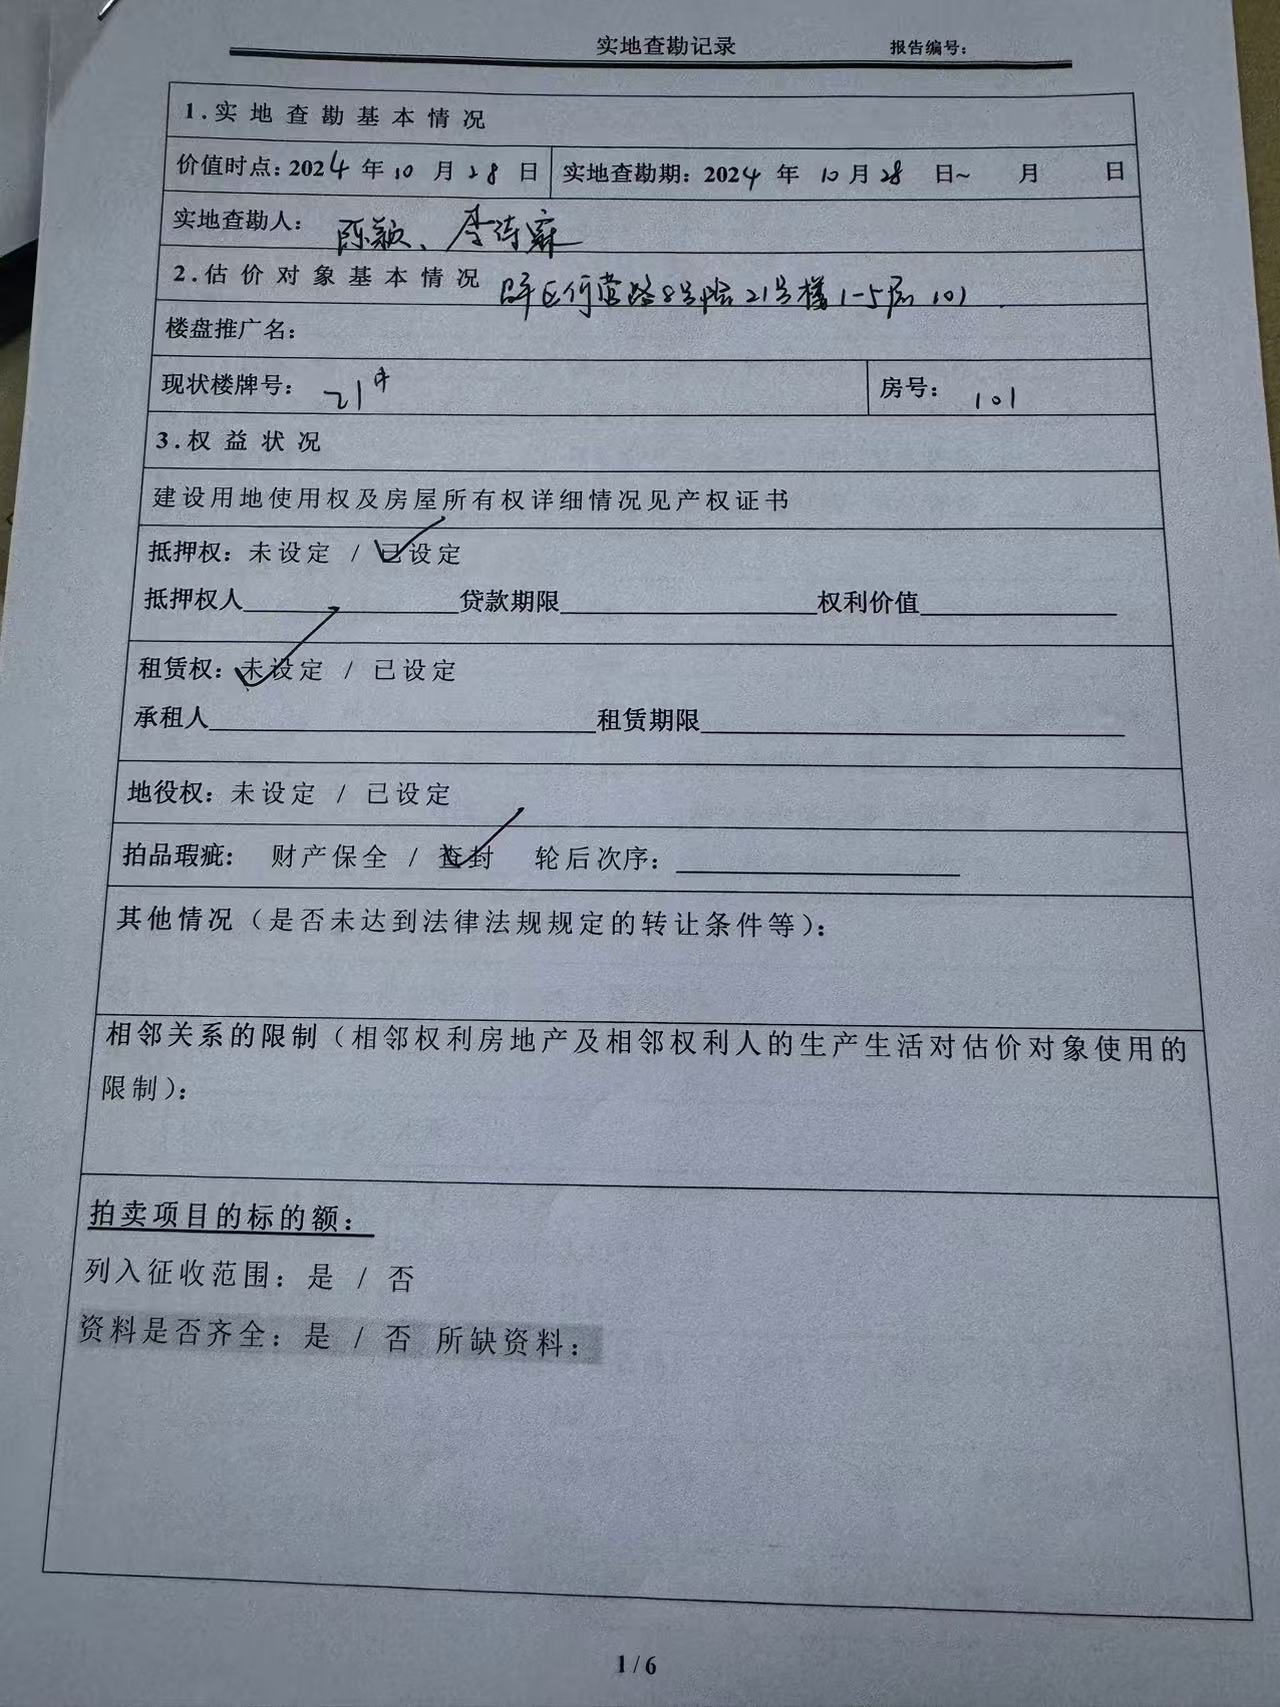 实地查勘记录 报告编号：
1.实地查勘基本情况
价值时点：2024年10月28日 实地查勘期：2024年10月28日~ 月 日
实地查勘人： 陈颖、李诗霖
2.估价对象基本情况 区何营路8号院21号楼1-5层101
楼盘推广名：
现状楼牌号： 21# 房号： 101
3.权益状况
建设用地使用权及房屋所有权详细情况见产权证书
抵押权：未设定 / 已设定
抵押权人 贷款期限 权利价值
租赁权：未设定 / 已设定
承租人 租赁期限
地役权：未设定 / 已设定
拍品瑕疵： 财产保全 / 查封 轮后次序：
其他情况（是否未达到法律法规规定的转让条件等）：
相邻关系的限制（相邻权利房地产及相邻权利人的生产生活对估价对象使用的
限制）：
拍卖项目的标的额：
列入征收范围：是 / 否
资料是否齐全：是 / 否 所缺资料：
1/6